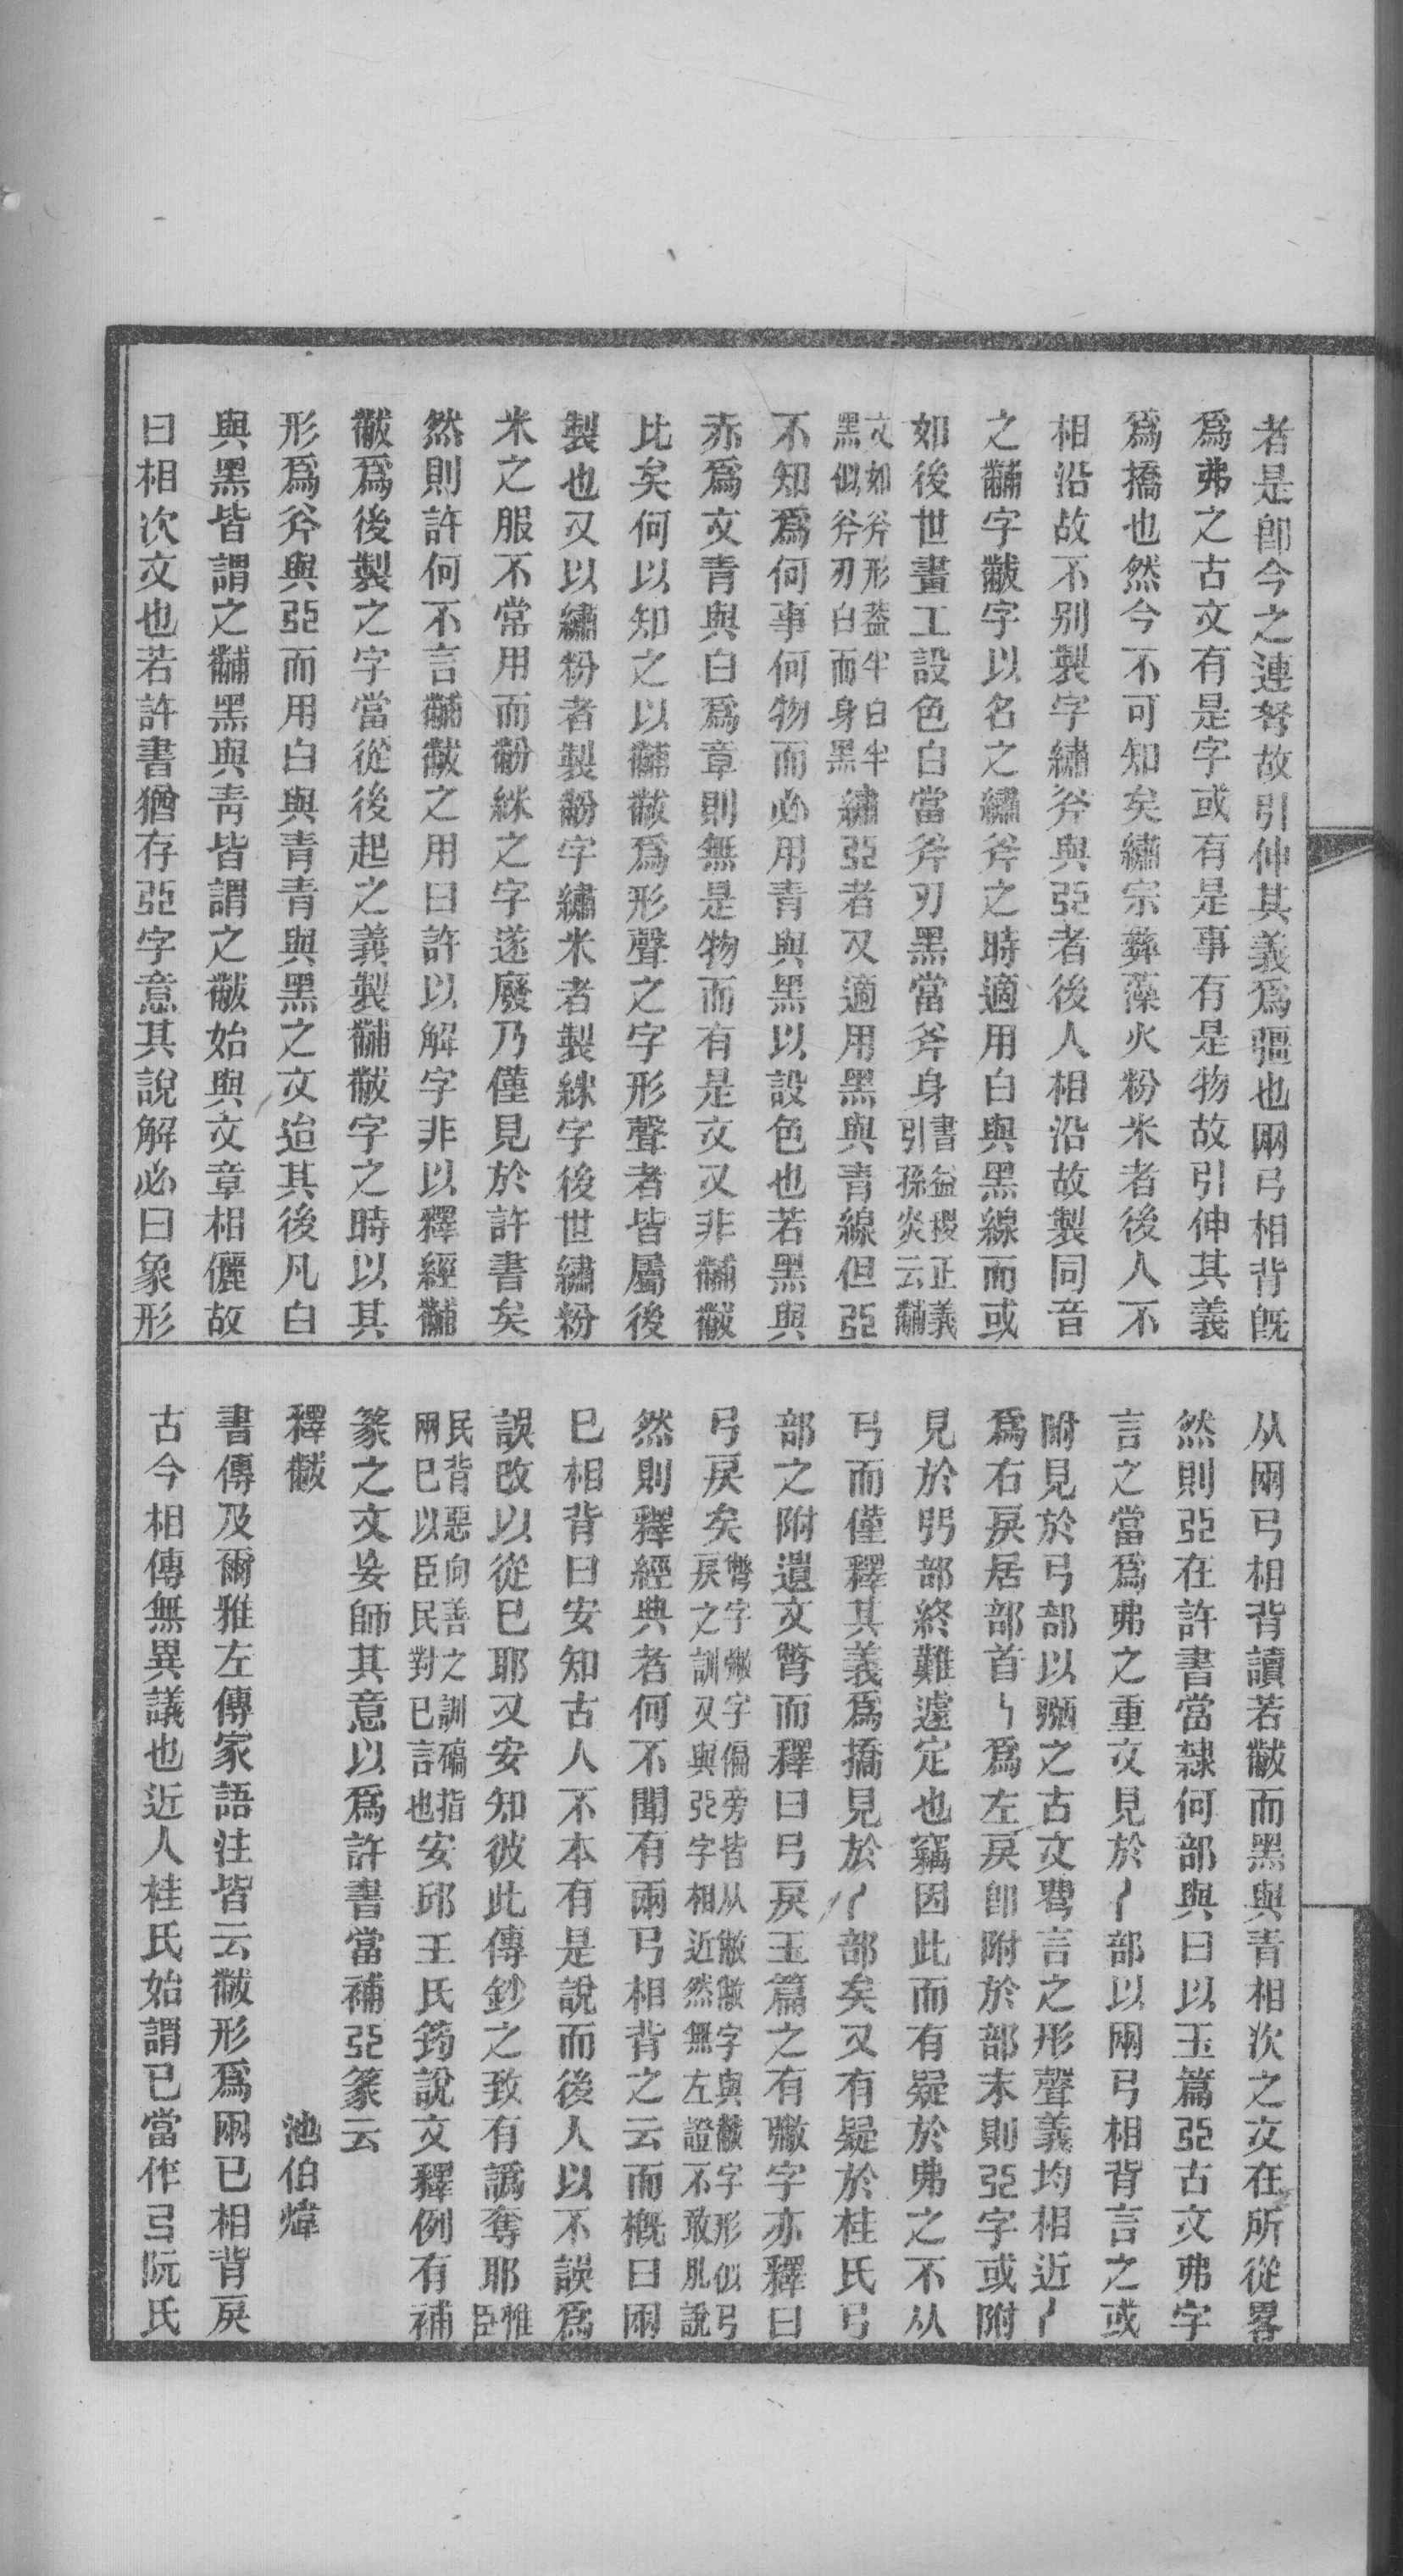 者是卽今之連弩故引伸其義爲彊也兩弓相背旣
爲弗之古文有是字或有是事有是物故引伸其義
爲撟也然今不可知矣繡宗彝藻火粉米者後人不
相沿故不別製字繡斧與亞者後人相沿故製同音
之黼字黻字以名之繡斧之時適用白與黑線而或
如後世畫工設色白當斧刃黑當斧身書益稷正義引孫炎云黼
文如斧形蓋半白半黑似斧刃白而身黑繡亞者又適用黑與青線但亞
不知爲何事何物而必用青與黑以設色也若黑與
赤爲文青與白爲章則無是物而有是文又非黼黻
比矣何以知之以黼黻爲形聲之字形聲者皆屬後
製也又以繡粉者製黺字繡米者製絑字後世繡粉
米之服不常用而黺絑之字遂廢乃僅見於許書矣
然則許何不言黼黻之用曰許以解字非以釋經黼
黻爲後製之字當從後起之義製黼黻字之時以其
形爲斧與亞而用白與青青與黑之文迨其後凡白
與黑皆謂之黼黑與青皆謂之黻始與文章相儷故
曰相次文也若許書猶存亞字意其說解必曰象形
从兩弓相背讀若黻而黑與青相次之文在所從畧
然則亞在許書當隸何部與曰以玉篇亞古文弗字
言之當爲弗之重文見於部以兩弓相背言之或
附見於弓部以之古文言之形聲義均相近
爲右戾居部首爲左戾卽附於部末則亞字或附
見於弜部終難遽定也竊因此而有疑於弗之不从
弓而僅釋其義爲撟見於部矣又有疑於桂氏弓
部之附遺文彆而釋曰弓戾玉篇之有字亦釋曰
弓戾矣彆字字偏旁皆从敝敝字與黻字形似弓戾之訓又與亞字相近然無左證不敢肊說
然則釋經典者何不聞有兩弓相背之云而槪曰兩
已相背曰安知古人不本有是說而後人以不誤爲
誤改以從已耶又安知彼此傳鈔之致有譌奪耶惟臣
民背惡向善之訓礄指兩已以臣民對已言也安邱王氏筠說文釋例有補
篆之文妄師其意以爲許書當補亞篆云
釋黻　池伯煒
書傳及爾雅左傳家語注皆云黻形爲兩已相背戾
古今相傳無異議也近人桂氏始謂已當作弓阮氏